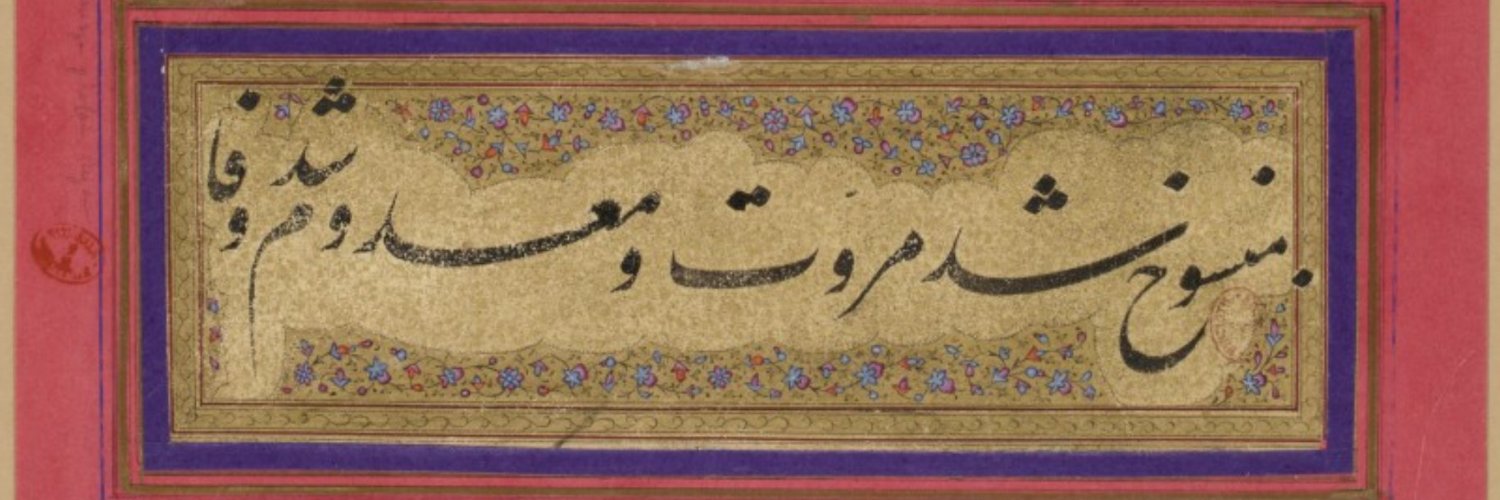 منسوخ شد مروت و معدوم شد وفا